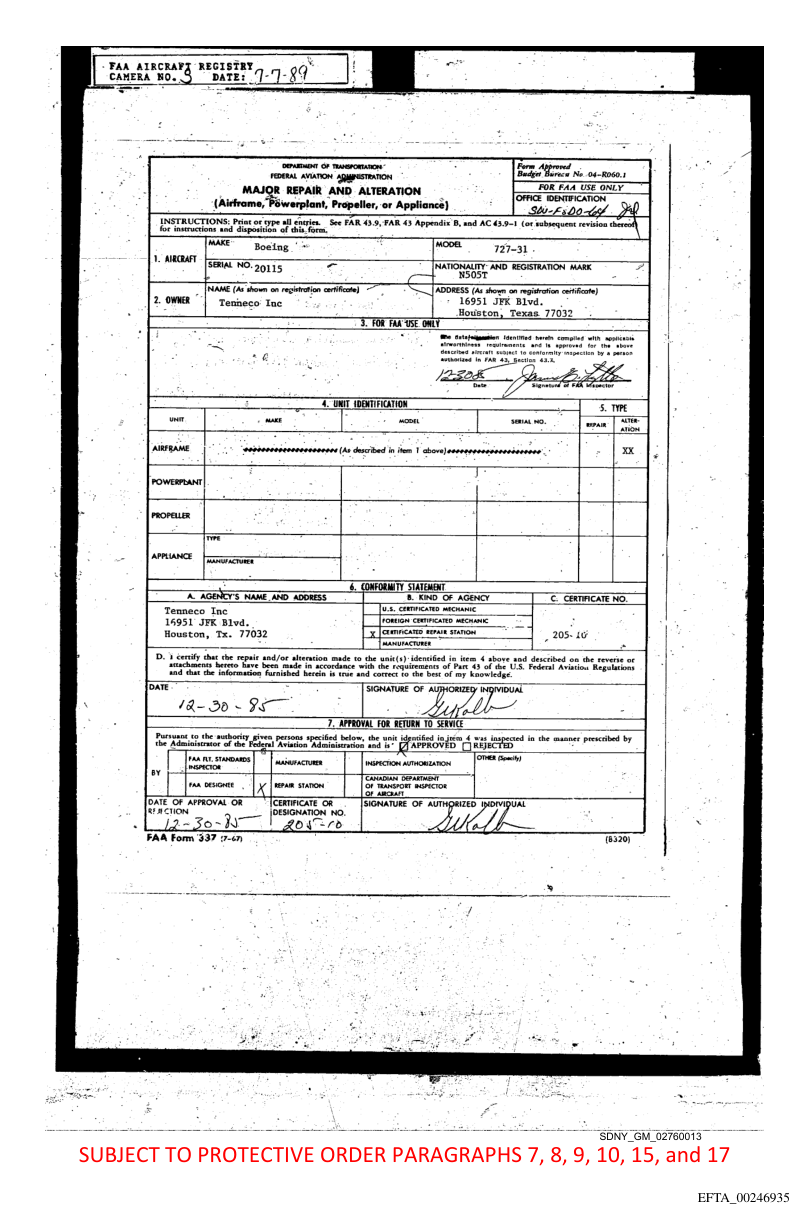 FAA AIRCRAFT REGISTRY
CAMERA NO. 3 DATE: 7-7-89
DEPARTMENT OF TRANSPORTATION
FEDERAL AVIATION ADMINISTRATION
MAJOR REPAIR AND ALTERATION
(Airframe, Powerplant, Propeller, or Appliance)
Form Approved
Budget Bureau No. 04-R060.1
FOR FAA USE ONLY
OFFICE IDENTIFICATION
SW-FSDO-64
INSTRUCTIONS: Print or type all entries. See FAR 43.9, FAR 43 Appendix B, and AC 43.9-1 (or subsequent revision thereof)
for instructions and disposition of this form.
1. AIRCRAFT
MAKE
Boeing
MODEL
727-31
SERIAL NO.
20115
NATIONALITY AND REGISTRATION MARK
N505T
2. OWNER
NAME (As shown on registration certificate)
Tenneco Inc
ADDRESS (As shown on registration certificate)
16951 JFK Blvd.
Houston, Texas 77032
3. FOR FAA USE ONLY
The data identified herein complied with applicable
airworthiness requirements and is approved for the above
described aircraft subject to conformity inspection by a person
authorized in FAR 43, Section 43.7.
Date
Signature of FAA Inspector
4. UNIT IDENTIFICATION
5. TYPE
UNIT
MAKE
MODEL
SERIAL NO.
REPAIR
ALTER-
ATION
AIRFRAME
(As described in item 1 above)
XX
POWERPLANT
PROPELLER
APPLIANCE
TYPE
MANUFACTURER
6. CONFORMITY STATEMENT
A. AGENCY'S NAME AND ADDRESS
B. KIND OF AGENCY
C. CERTIFICATE NO.
Tenneco Inc
16951 JFK Blvd.
Houston, Tx. 77032
U.S. CERTIFICATED MECHANIC
FOREIGN CERTIFICATED MECHANIC
X CERTIFICATED REPAIR STATION
MANUFACTURER
205-10
D. I certify that the repair and/or alteration made to the unit(s) identified in item 4 above and described on the reverse or
attachments hereto have been made in accordance with the requirements of Part 43 of the U.S. Federal Aviation Regulations
and that the information furnished herein is true and correct to the best of my knowledge.
DATE
12-30-85
SIGNATURE OF AUTHORIZED INDIVIDUAL
7. APPROVAL FOR RETURN TO SERVICE
Pursuant to the authority given persons specified below, the unit identified in item 4 was inspected in the manner prescribed by
the Administrator of the Federal Aviation Administration and is APPROVED REJECTED
BY
FAA FLT. STANDARDS
INSPECTOR
MANUFACTURER
INSPECTION AUTHORIZATION
OTHER (Specify)
FAA DESIGNEE
X REPAIR STATION
CANADIAN DEPARTMENT
OF TRANSPORT INSPECTOR
OF AIRCRAFT
DATE OF APPROVAL OR
REJECTION
12-30-85
CERTIFICATE OR
DESIGNATION NO.
205-10
SIGNATURE OF AUTHORIZED INDIVIDUAL
FAA Form 337 (7-67)
(8320)
SDNY_GM_02760013
SUBJECT TO PROTECTIVE ORDER PARAGRAPHS 7, 8, 9, 10, 15, and 17
EFTA_00246935